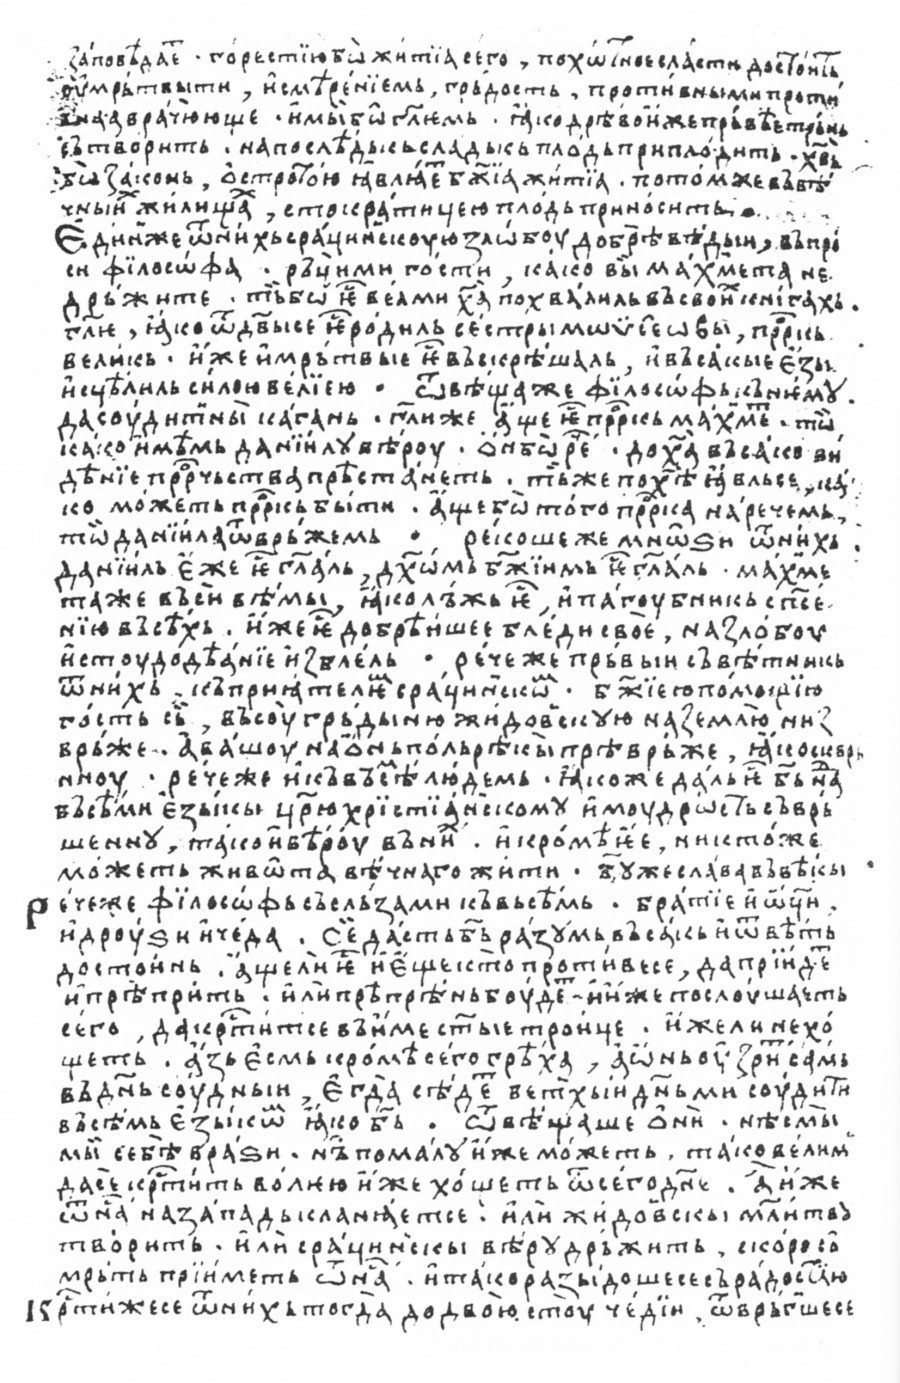 заповѣдае҃ · горестїю бѡ житїа сего , похѡтное сласти достоить
оумрьтвыти , и смѣренїемь , грьдость , противными проти
внаа врачююще · и мы бѡ гл҃емь · ꙗко дрѣво иже прьвѣе трьнь
сътворить · на послѣдькь сладькь плодь приплодить · хв҃ь
бѡ законь , остротою ꙗвлꙗе бж҃їа житїа · потом же въ вѣ
чныи жилища , стократицею плодь приносить ·
Единже ѿ нихь срачинскоую злобоу добрѣ вѣдыи , въпро
си фїлософа · рьци ми гости , како вы махмета не
дрьжите · тъ бѡ ѥ҃ вельми х҃а похвалиль въ свои книгахь .
гл҃ѥ , ꙗко ѿ дв҃ые сѥ ѥ҃ родиль сестры мѡѵсеѡвы , пр҃ркь
великь · иже и мрьтвые ѥ҃ въскрѣшаль , и въсакые ѥзы
исцѣлиль силою велїею · Ѿвѣща же фїлософь кь нѥмѹ .
да соудит ны каган҄ь · гл҃и же аще ѥ҃ пр҃ркь махме · тѡ
како имѣмь данїилѹ вѣроу · онь бѡ ре҃ · до х҃а въсако ви
дѣнїе пр҃рчьства прѣстанеть · тъже по х҃ѣ ꙗвль се , ка
ко можеть пр҃ркь быти · аще бѡ того пр҃рка наречемь ,
тѡ данїила ѿврьжемь · рекоше же мнѡѕи ѿ нихь
данїиль еже ѥ҃ гл҃аль , дх҃ѡмь бж҃їимь ѥ҃ гл҃аль · махме
та же въси вѣмы , ꙗко льжь ѥ҃ , и пагоубникь спсе
нїю въсѣхь · иже ѥ҃ добрѣишее бледи своѥ , на злобоу
и стоудодѣанїе изблель · рече же прьвыи съвѣтникь
ѿ нихь кь приꙗтелѥ срачинскѡ · бж҃їею помощїю
гость съ , въсоу грьдыню жидовскую на землю низ
врьже · а вашоу на онь поль рѣкы прѣврьже , ꙗко скврь
нноу · рече же и кь въсѣ людемь · ꙗкоже даль ѥ҃ бъ на
въсѣми ѥзыкы цр҃ю хрїстїанскому и моудрѡсть съврь
шенну , тако и вѣроу въ ни · и кромѣ ѥе , никтоже
можеть живѡта вѣчнаго жити · бу҃ же слава въ вѣкы
Рече же фїлософь съ сльзами кь всѣмь · братїе и ѡци ,
и дроуѕи и чеда · Се дасть бъ҃ разумь въсакь и ѿвѣть
достоинь . аще ли ѥ҃ и ѥще кто противѥ се , да прїиде
и прѣприть · или прѣпрѣнь боуде · иже послоушаѥть
сего , да крьтит се въ име ст҃ые троице · иже ли не хо
щеть . азь ѥсмь кромѣ сего грѣха , а онь оузрить самь
въ дн҃ь соудныи , ѥгда сѣде ветхыи дн҃ьми соудити
въсѣмь ѥзыкѡ ꙗко бъ҃ · Ѿвѣщаше они · нѣсмы
мы себѣ враѕи · нъ помалу иже можеть , тако велим
да се крьтить волѥю иже хощеть ѿ сего дне . А иже
ѿ на на западь кланꙗет се · или жидовскы мл҃итвы
творить · или срачинскы вѣру дрьжить , скоро съ
мрьть прїиметь ѿ на · и тако разыдоше се съ радостїю
Кртиже се ѿ нихь тогда до двою стоу чедїи , ѿврьгше се